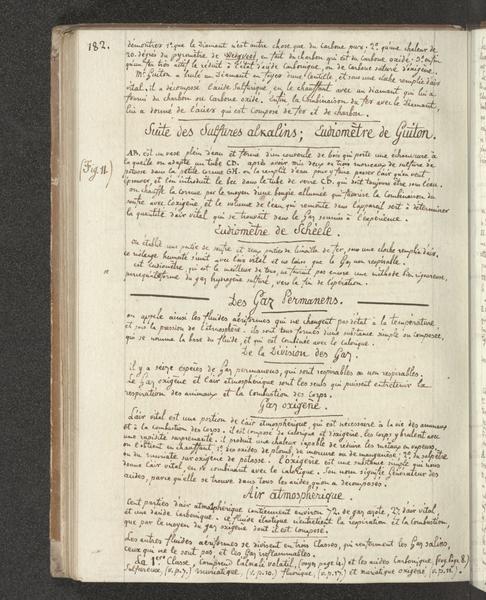 182.
démontrer 1° que le Diamant n'est autre chose que du Carbone pur. 2° qu'une chaleur de
20. dégrés du pyromètre de Wedgwod en fait du charbon qui est du carbone oxidé. 3° enfin
qu'un feu très actif le réduit à l'état d'acide Carbonique, ou de Carbone saturé d'oxigène.
Mr. Guiton a brulé un Diamant au foyer d'une lentille, et sous une cloche remplie d'air
vital. il a décomposé l'acide Sulfurique, en le chauffant avec un diamant qui lui a
fourni du charbon ou Carbone oxidé. Enfin la Combinaison du fer avec le Diamant,
lui a donné de l'acier qui est Composé de fer et de charbon.
Suite des Sulfures alkalins; Eudiomètre de Guiton.
(Fig. 11.)
AB. est un vase plein d'eau et fermé d'un couvercle de bois qui porte une échancrure à
laquelle on adapte un tube CD. après avoir mis deux ou trois morceaux de sulfure de
potasse dans la petite cornue GH. on la remplit d'eau pour y faire passer l'air qu'on veut
éprouver, et l'on introduit le bec dans le tube de verre CD. qui doit toujours être sous l'eau.
on chauffe la cornue par le moyen d'une bougie allumée qui favorise la Combinaison du
soufre avec l'oxigène, et le volume de l'eau qui remonte dans l'appareil sert à déterminer
la quantité d'air vital qui se trouvait dans le Gaz soumis à l'expérience.
Eudiomètre de Schéele.
On établit une partie de soufre et deux parties de limaille de fer, sous une cloche remplie d'air.
ce mélange humecté s'unit avec l'air vital et ne laisse que le Gaz non respirable.
cet Eudiomètre, qui est le meilleur de tous, ne fournit pas encore une méthode bien rigoureuse,
parcequ'il se forme du gaz hydrogène sulfuré, vers la fin de l'opération.
Des Gaz Permanens.
on appele ainsi les fluides aériformes qui ne changent pas d'état à la température
et sous la pression de l'atmosphère. ils sont tous formés d'une substance simple ou composée,
qui se nomme la base du fluide, et qui est combinée avec le calorique.
De la Division des Gaz.
il y a seize espèces de Gaz permanens, qui sont respirables ou non respirables.
Le Gaz oxigène et l'air atmosphérique sont les seuls qui puissent entretenir la
respiration des animaux et la combustion des corps.
Gaz oxigène.
L'air vital est une portion de l'air atmosphérique, qui est nécessaire à la vie des animaux
et à la combustion des corps. il est composé de calorique et d'oxigène. les corps y brulent avec
une rapidité surprenante. il produit une chaleur capable de réduire les métaux en vapeurs.
on l'obtient en chauffant 1° des oxides de plomb, de mercure ou de manganèse; 2° du salpêtre
ou du muriate suroxigéné de potasse. L'oxigène est une substance simple qui nous
donne l'air vital, en se combinant avec le calorique. Son nom signifie Générateur des
acides, parce qu'elle se trouve dans tous les acides qu'on a décomposés.
Air atmosphérique.
Cent parties d'air atmosphérique contiennent environ 72. de gaz azote, 27. d'air vital,
et une d'acide Carbonique. ce fluide élastique n'entretient la respiration et la combustion,
que par le moyen du gaz oxigène dont il est composé.
Les autres fluides aériformes se divisent en trois Classes, qui renferment les Gaz salins,
ceux qui ne le sont pas, et les Gaz inflammables.
La 1ère Classe, comprend l'alkali volatil, (voyez page 4.) et les acides Carbonique, (voy. Page 8.)
Sulfureux, (v. p. 7.) muriatique, (v. p. 10.) fluorique, (v. p. 17.) et muriatique oxigéné (v. p. 12.)